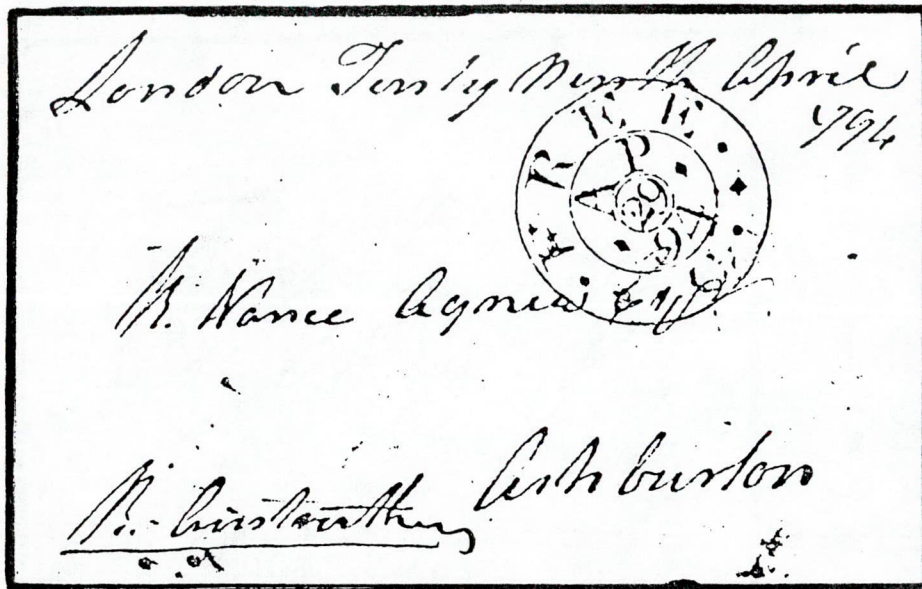 London Twenty Ninth April
794
FREE
AP
29
94
R. Vance Agnew Esqr
Ashburton